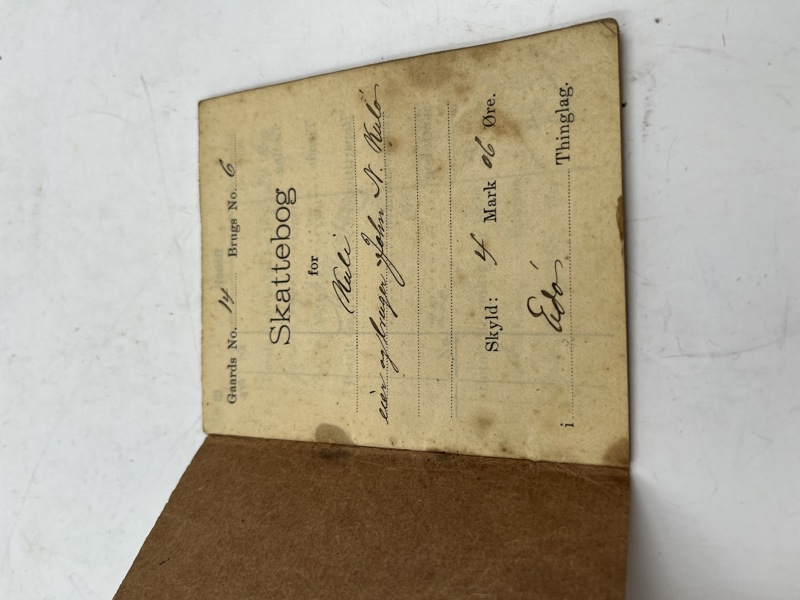 Gaards No. 14 Brugs No. 6
Skattebog
for
Kuli
eier og bruger John N. Kulö
Skyld: 4 Mark 06 Øre.
i Edö Thinglag.